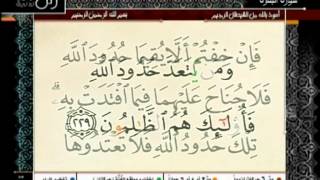 سورة البقرة
أعوذ بالله من الشيطان الرجيم بسم الله الرحمن الرحيم
فَإِنْ خِفْتُمْ أَلَّا يُقِيمَا حُدُودَ ٱللَّهِ
وَمَن يَتَعَدَّ حُدُودَ ٱللَّهِ
فَلَا جُنَاحَ عَلَيْهِمَا فِيمَا ٱفْتَدَتْ بِهِۦ
فَأُو۟لَـٰٓئِكَ هُمُ ٱلظَّـٰلِمُونَ ٢٢٩
تِلْكَ حُدُودُ ٱللَّهِ فَلَا تَعْتَدُوهَا